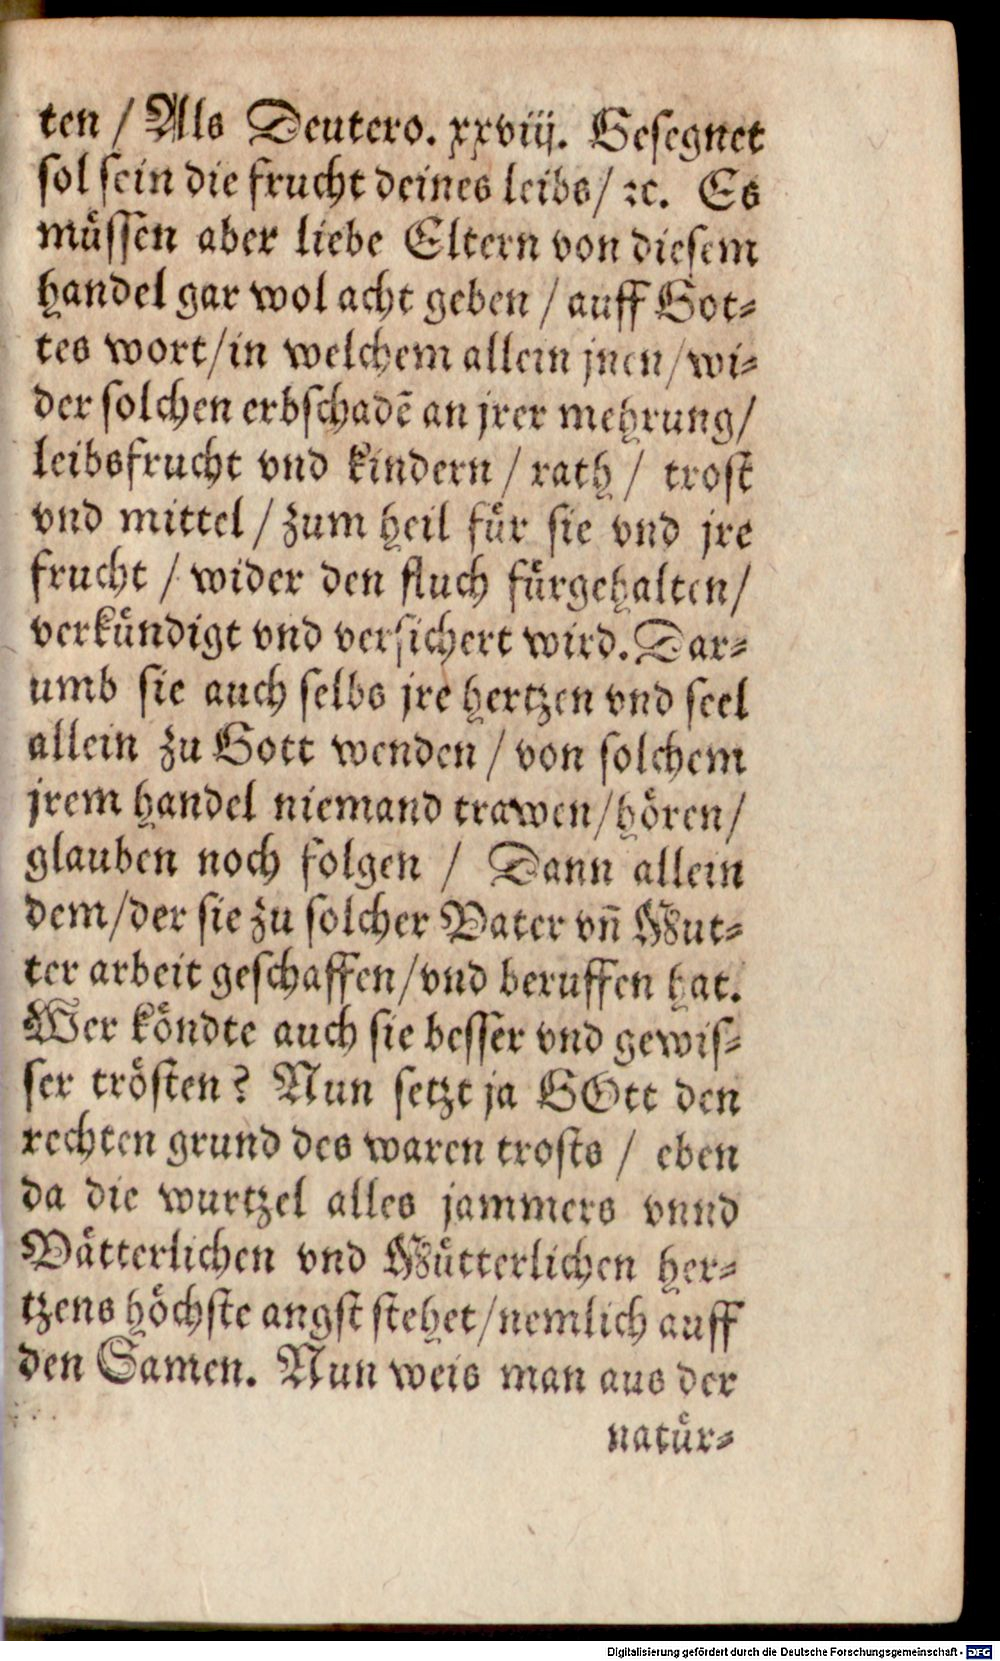 ten / Als Deutero. xxviij. Gesegnet
sol sein die frucht deines leibs / ꝛc. Es
muͤssen aber liebe Eltern von diesem
handel gar wol acht geben / auff Got-
tes wort / in welchem allein jnen / wi-
der solchen erbschadẽ an jrer mehrung /
leibsfrucht vnd kindern / rath / trost
vnd mittel / zum heil fuͤr sie vnd jre
frucht / wider den fluch fuͤrgehalten /
verkuͤndigt vnd versichert wird. Dar-
umb sie auch selbs jre hertzen vnd seel
allein zu Gott wenden / von solchem
jrem handel niemand trawen / hoͤren /
glauben noch folgen / Dann allein
dem / der sie zu solcher Vater vñ Mut-
ter arbeit geschaffen / vnd beruffen hat.
Wer koͤndte auch sie besser vnd gewis-
ser troͤsten? Nun setzt ja GOtt den
rechten grund des waren trosts / eben
da die wurtzel alles jammers vnnd
Vaͤtterlichen vnd Muͤtterlichen her-
tzens hoͤchste angst stehet / nemlich auff
den Samen. Nun weis man aus der
natuͤr-
Digitalisierung gefördert durch die Deutsche Forschungsgemeinschaft - DFG